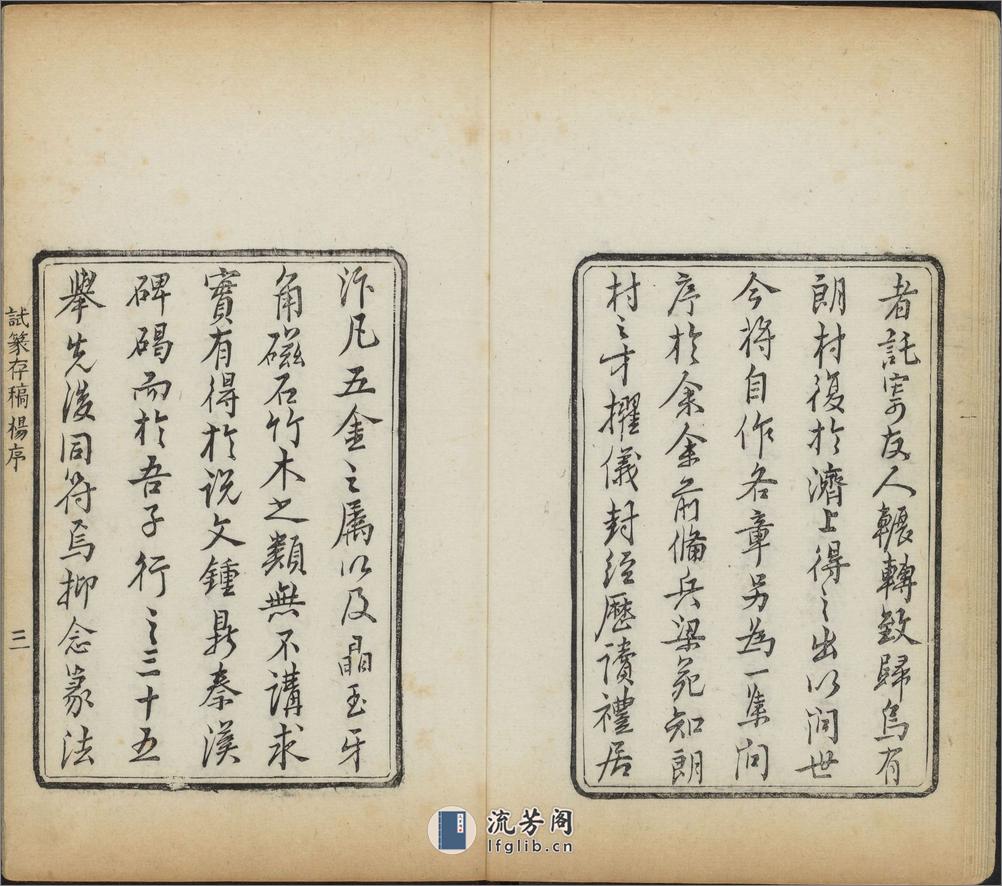 者託寄友人輾轉致歸烏有
朗村復於濟上得之出以問世
今將自作各章另為一集問
序於余余前備兵梁苑知朗
村之才擢儀封經歷讀禮居
汴凡五金之屬以及晶玉牙
角磁石竹木之類無不講求
實有得於說文鍾鼎秦漢
碑碣而於吾子行之三十五
舉先後同符焉抑念篆法
試篆存稿楊序
三
流芳阁
lfglib.cn